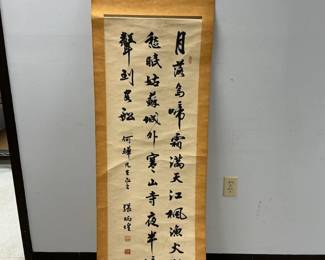 月落烏啼霜滿天江楓漁火
愁眠姑蘇城外寒山寺夜半
聲到客船
先生
張炳煌